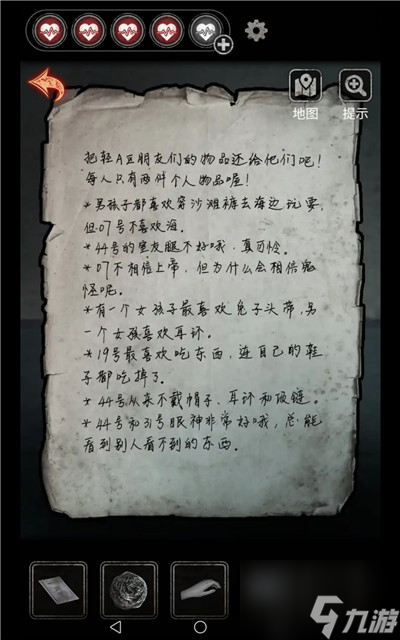 地图
提示
把轻A区朋友们的物品还给他们吧！
每人只有两件个人物品喔！
*男孩子都喜欢穿沙滩裤去海边玩耍，
但07号不喜欢海。
*44号的室友腿不好哦，真可怜。
*07不相信上帝，但为什么会相信鬼
怪呢。
*有一个女孩子最喜欢兔子头带，另
一个女孩喜欢耳环。
*19号最喜欢吃东西，连自己的鞋
子都吃掉了。
*44号从来不戴帽子、耳环和项链。
*44号和31号眼神非常好哦，总能
看到别人看不到的东西。
九游